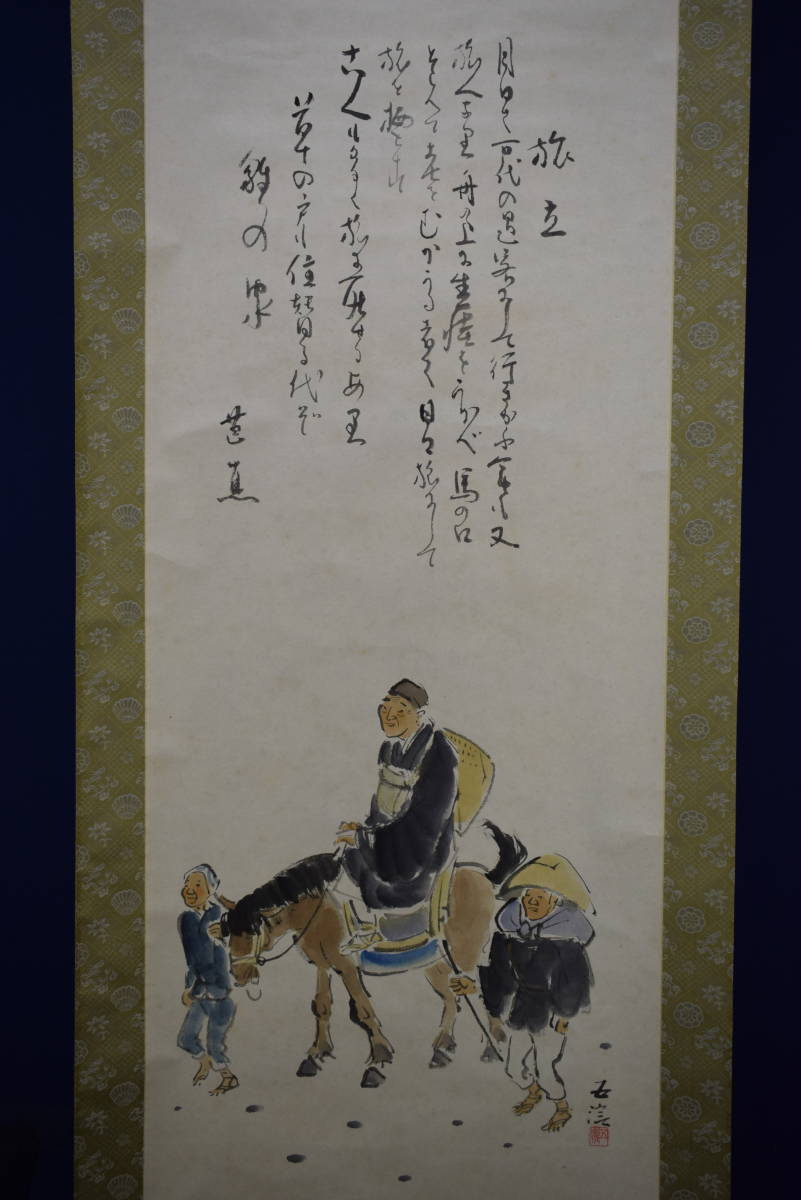 旅立
月日は百代の過客にして行きかふ年も又
旅人なり舟の上に生涯をうかべ馬の口
とらへて老をむかふる者は日日旅にして
旅を栖とす
古人も多く旅に死せるあり
草の戸も住替る代ぞ
雛の家
芭蕉